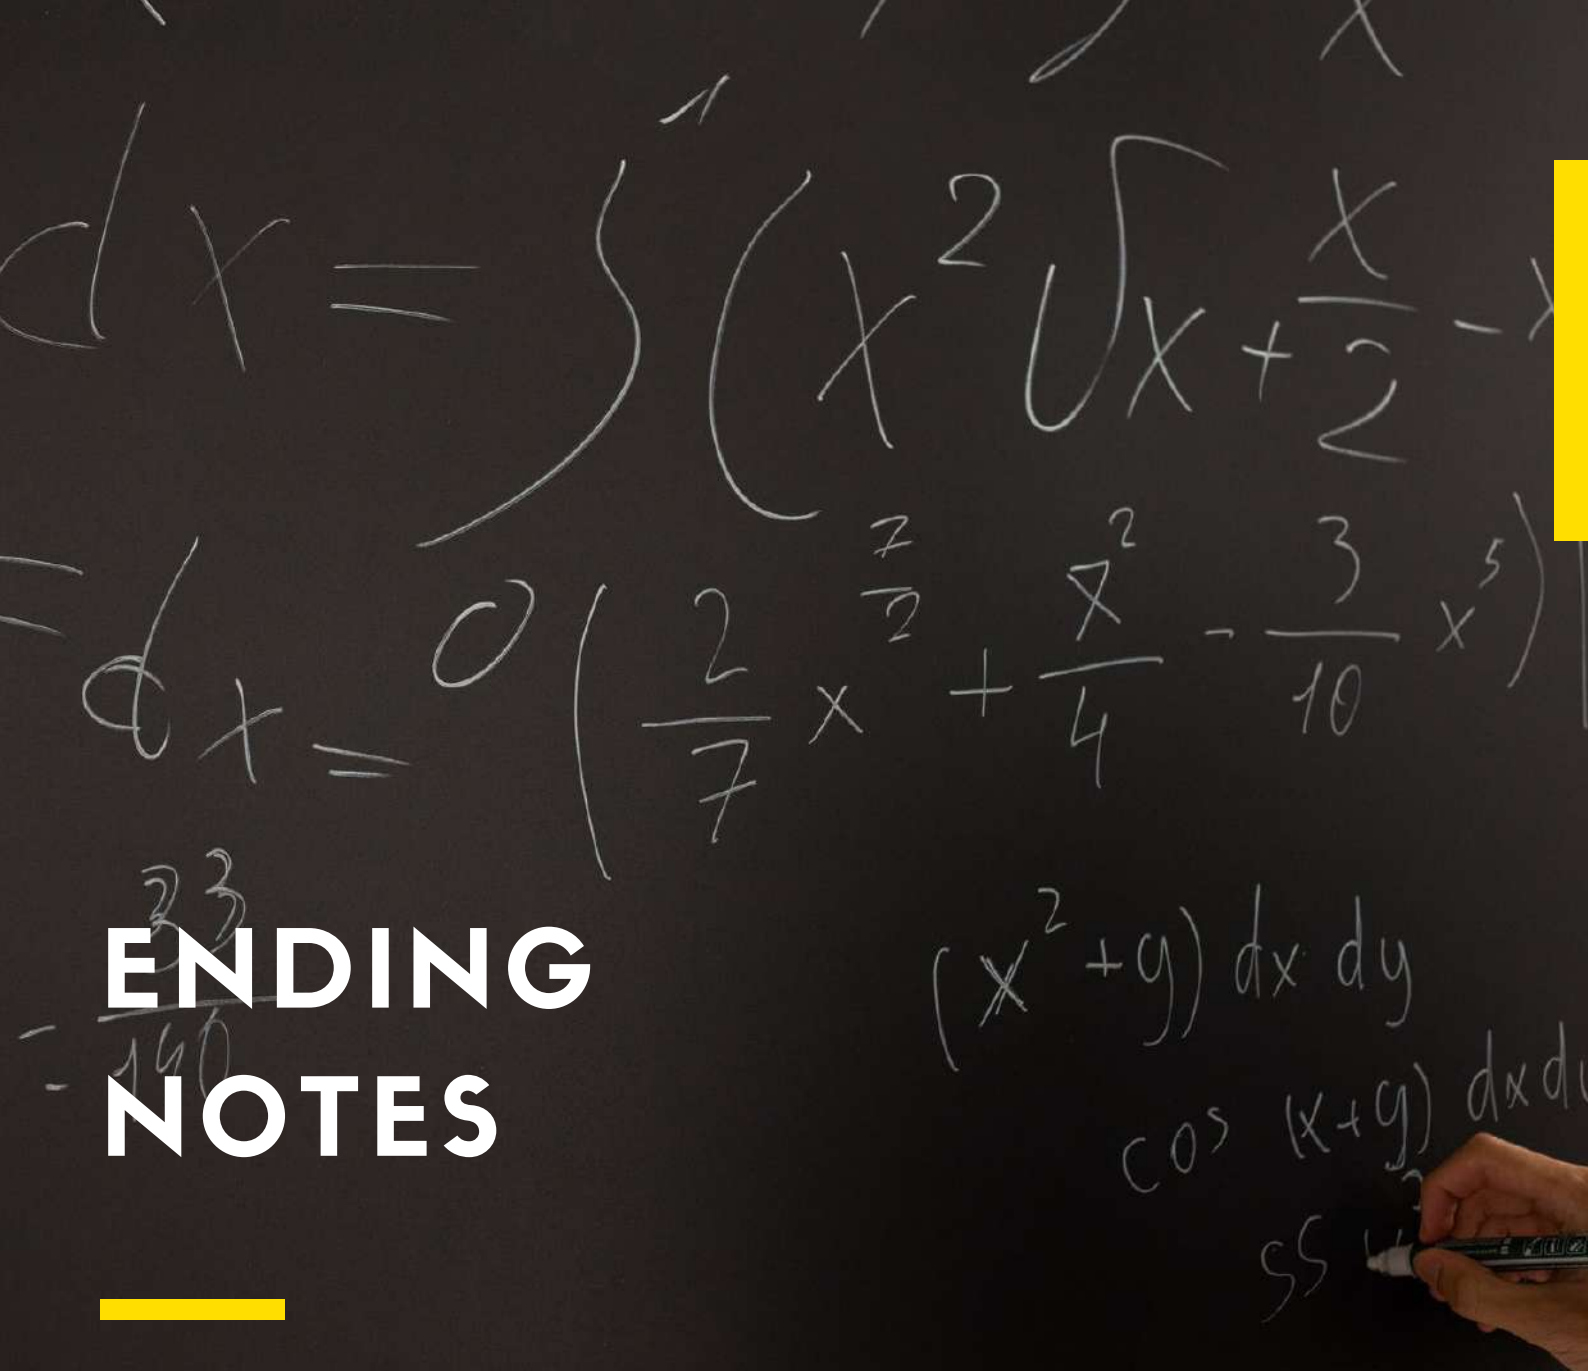 dx = ∫ ( x² √x + x/2 - x
1
= dx = 0 ( 2/7 x^7/2 + x²/4 - 3/10 x⁵ ) |
= 33/140
(x² + y) dx dy
cos (x+y) dx dy
SS
ENDING
NOTES